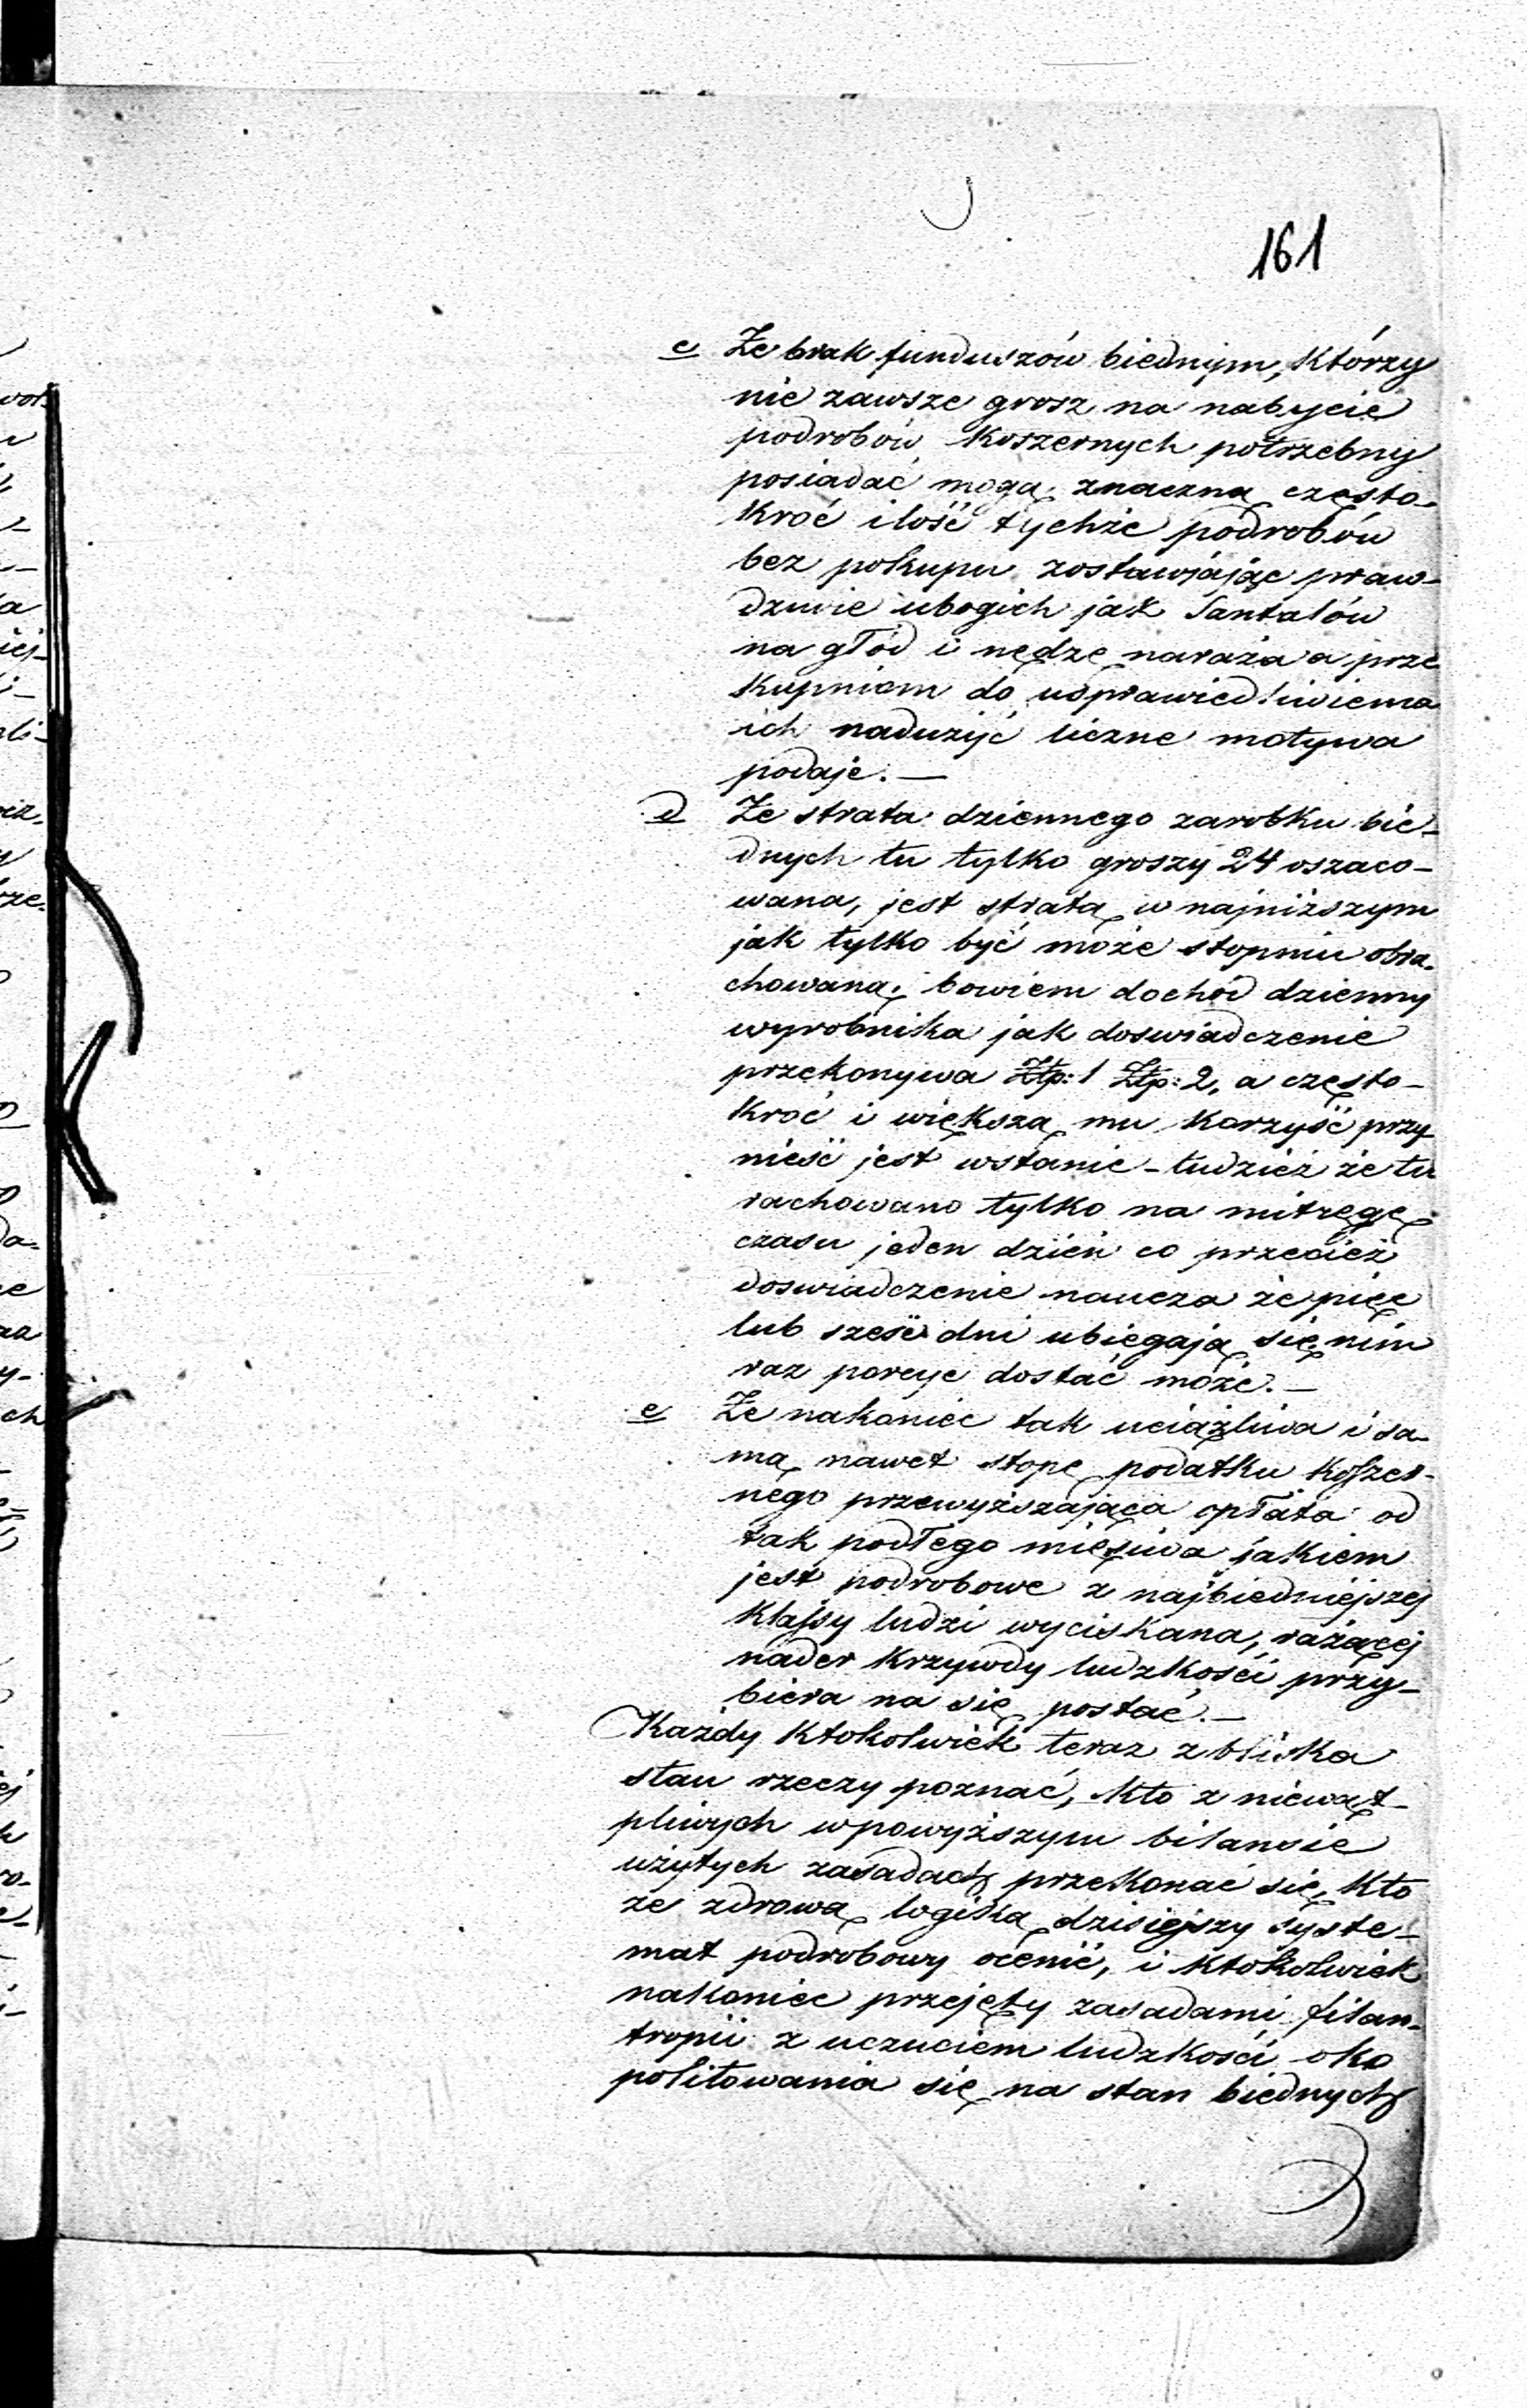 161
c Że brak funduszów biednym, którzy
nie zawsze grosz na nabycie
podrobów koszernych potrzebny
posiadać mogą, znaczną często-
kroć ilość tychże podrobów
bez pokupu zostawiając praw-
dziwie ubogich jak Tantalów
na głód i nędzę naraża a prze
kupniom do usprawiedliwienia
ich nadużyć liczne motywa
podaje. —
d Że strata dziennego zarobku bie-
dnych tu tylko groszy 24 oszaco-
wana, jest stratą w najniższym
jak tylko być może stopniu obra-
chowaną; bowiem dochód dzienny
wyrobnika jak doswiadczenie
przekonywa Złp: 1 Złp: 2, a często-
kroć i większą mu korzyść przy
nieść jest wstanie - tudzież że tu
rachowano tylko na mitręgę
czasu jeden dzień co przecież
doswiadczenie naucza że pięć
lub sześć dni ubiegają się nim
raz porcye dostać może. —
e Że nakoniec tak uciążliwa i sa-
mą nawet stopę podatku koszer-
nego przewyższająca opłata od
tak podłego mięsiwa jakiem
jest podrobowe z najbiedniejszej
klassy ludzi wyciskana, rażącej
nader krzywdy ludzkości przy-
biera na się postać. —
Każdy ktokolwiek teraz zbliska
stan rzeczy poznać, kto z niewąt-
pliwych wpowyższym bilansie
użytych zasadach przekonać się, kto
ze zdrową logiką dzisiejszy syste-
mat podrobowy ocenić, i ktokolwiek
nakoniec przejęty zasadami filan-
tropii z uczuciem ludzkości oko
politowania się na stan biednych